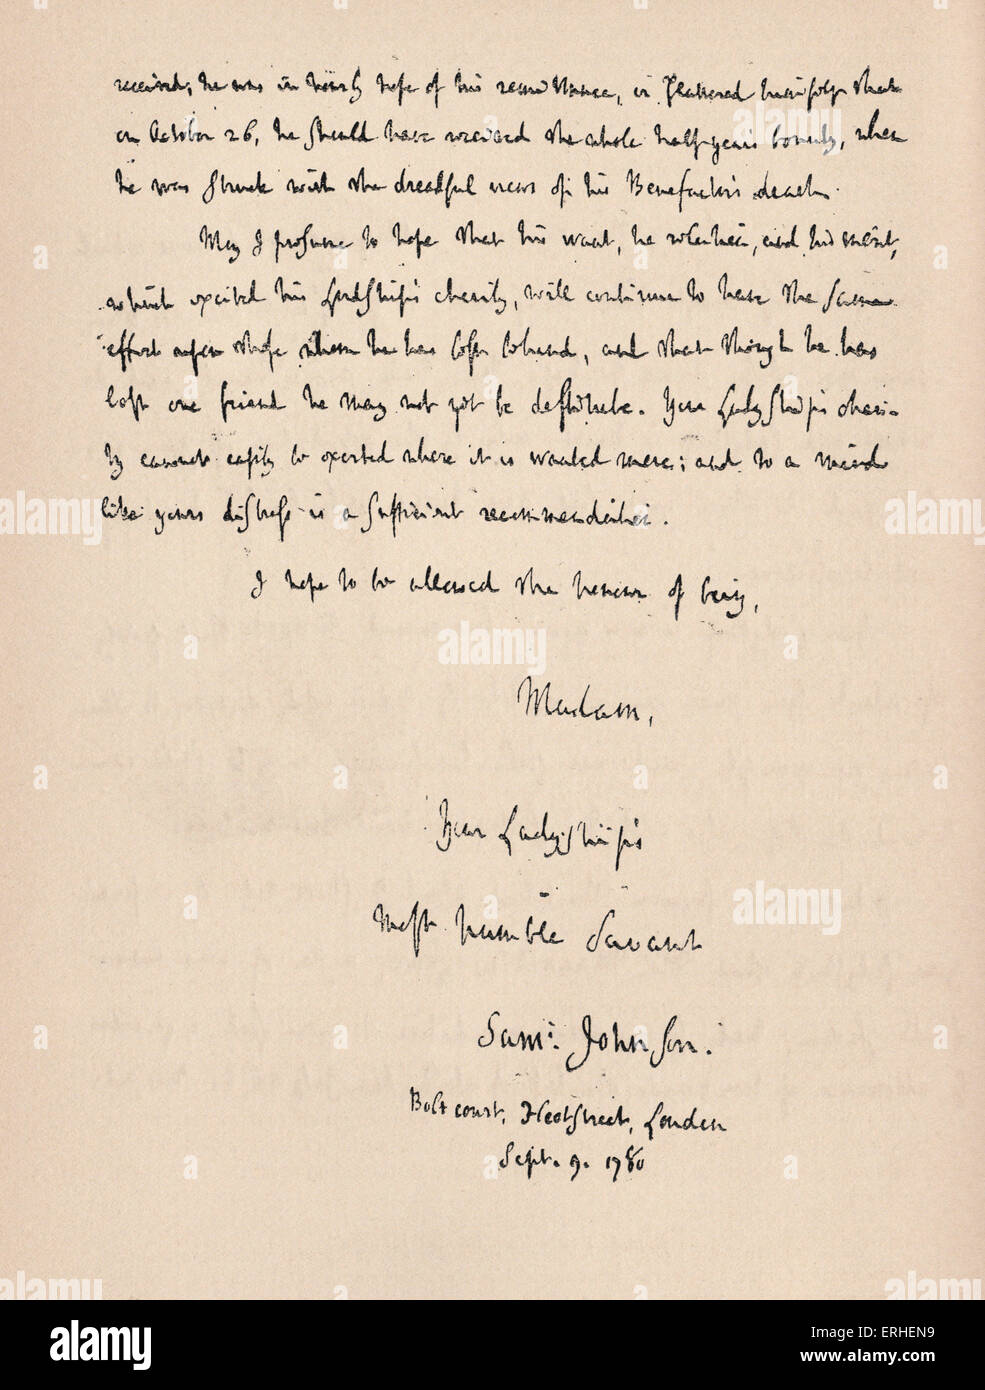 received; he was in hourly hope of his remittance, or flattered himself that
on October 26, he should have received the whole half-year's bounty, when
he was struck with the dreadful news of his Benefactor's death.
May I presume to hope that his want, his relation, and his merit,
which excited his Lordship's charity, will continue to have the same
effect upon those whom he has left behind, and that though he has
lost one friend he may not yet be destitute. Your Ladyship's chari-
ty cannot easily be exerted where it is wanted more; and to a mind
like yours distress is a sufficient recommendation.
I hope to be allowed the honour of being,
Madam,
Your Ladyship's
Most humble Servant
Sam: Johnson.
Bolt court, Fleetstreet, London
Sept. 9. 1780
alamy
Image ID: ERHEN9
www.alamy.com